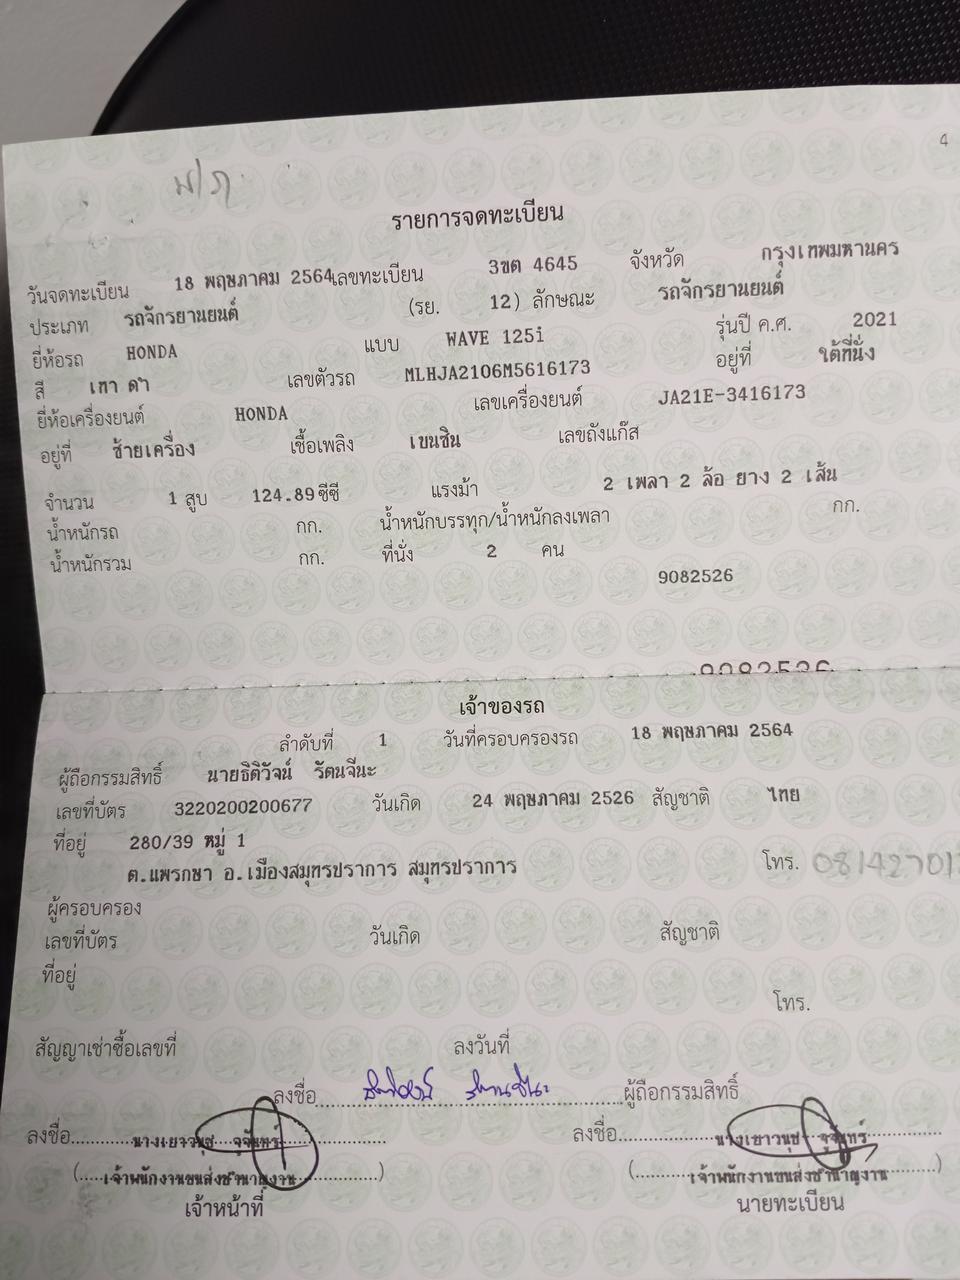 4
รายการจดทะเบียน
วันจดทะเบียน 18 พฤษภาคม 2564 เลขทะเบียน 3ขต 4645 จังหวัด กรุงเทพมหานคร
ประเภท รถจักรยานยนต์ (รย. 12) ลักษณะ รถจักรยานยนต์
ยี่ห้อรถ HONDA แบบ WAVE 125i รุ่นปี ค.ศ. 2021
สี เทา ดำ เลขตัวรถ MLHJA2106M5616173 อยู่ที่ ใต้ที่นั่ง
ยี่ห้อเครื่องยนต์ HONDA เลขเครื่องยนต์ JA21E-3416173
อยู่ที่ ซ้ายเครื่อง เชื้อเพลิง เบนซิน เลขถังแก๊ส
จำนวน 1 สูบ 124.89 ซีซี แรงม้า 2 เพลา 2 ล้อ ยาง 2 เส้น
น้ำหนักรถ กก. น้ำหนักบรรทุก/น้ำหนักลงเพลา กก.
น้ำหนักรวม กก. ที่นั่ง 2 คน
9082526
9082526
เจ้าของรถ
ลำดับที่ 1 วันที่ครอบครองรถ 18 พฤษภาคม 2564
ผู้ถือกรรมสิทธิ์ นายธิติวัจน์ รัตนจีนะ
เลขที่บัตร 3220200200677 วันเกิด 24 พฤษภาคม 2526 สัญชาติ ไทย
ที่อยู่ 280/39 หมู่ 1
ต.แพรกษา อ.เมืองสมุทรปราการ สมุทรปราการ โทร. 081427017
ผู้ครอบครอง
เลขที่บัตร วันเกิด สัญชาติ
ที่อยู่
โทร.
สัญญาเช่าซื้อเลขที่ ลงวันที่
ลงชื่อ ธิติวัจน์ รัตนจีนะ ผู้ถือกรรมสิทธิ์
ลงชื่อ นางเยาวนุช จุจันทร์ ลงชื่อ นางเยาวนุช จุจันทร์
(เจ้าพนักงานขนส่งชำนาญงาน) (เจ้าพนักงานขนส่งชำนาญงาน)
เจ้าหน้าที่ นายทะเบียน